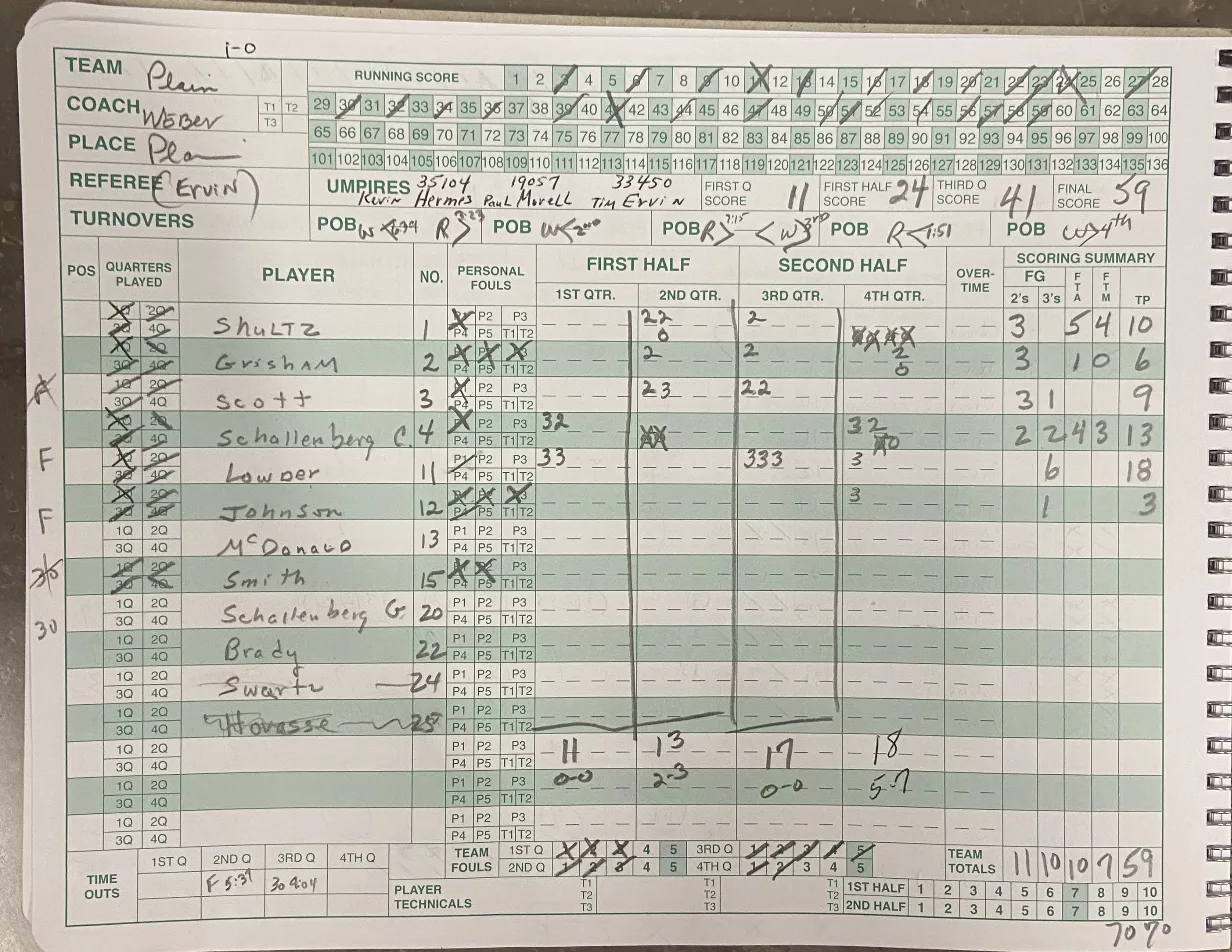 i-o
TEAM Plain RUNNING SCORE 1 2 3 4 5 6 7 8 9 10 11 12 13 14 15 16 17 18 19 20 21 22 23 24 25 26 27 28
COACH WEBER T1 T2 T3 29 30 31 32 33 34 35 36 37 38 39 40 41 42 43 44 45 46 47 48 49 50 51 52 53 54 55 56 57 58 59 60 61 62 63 64
65 66 67 68 69 70 71 72 73 74 75 76 77 78 79 80 81 82 83 84 85 86 87 88 89 90 91 92 93 94 95 96 97 98 99 100
PLACE 101 102 103 104 105 106 107 108 109 110 111 112 113 114 115 116 117 118 119 120 121 122 123 124 125 126 127 128 129 130 131 132 133 134 135 136
REFEREE (Ervin) UMPIRES 35104 Kevin Hermes 19057 Paul Morell 33450 Tim Ervin FIRST Q SCORE 11 FIRST HALF SCORE 24 THIRD Q SCORE 41 FINAL SCORE 59
TURNOVERS POB W R 3:23 POB W 2nd POB R 7:15 W 3rd POB R 1:51 POB W 4th
POS QUARTERS PLAYED PLAYER NO. PERSONAL FOULS FIRST HALF SECOND HALF OVER-TIME SCORING SUMMARY
1ST QTR. 2ND QTR. 3RD QTR. 4TH QTR. FG 2's 3's FTA FTM TP
1Q 2Q 3Q 4Q Shultz 1 P1 P2 P3 P4 P5 T1 T2 22 0 2 XXXX 3 5 4 10
1Q 2Q 3Q 4Q Grisham 2 P1 P2 P3 P4 P5 T1 T2 2 2 2 0 3 1 0 6
1Q 2Q 3Q 4Q Scott 3 P1 P2 P3 P4 P5 T1 T2 23 22 3 1 9
1Q 2Q 3Q 4Q Schallenberg C. 4 P1 P2 P3 P4 P5 T1 T2 32 XX 32 X0 2 2 4 3 13
F 1Q 2Q 3Q 4Q Lowder 11 P1 P2 P3 P4 P5 T1 T2 33 333 3 6 18
F 1Q 2Q 3Q 4Q Johnson 12 P1 P2 P3 P4 P5 T1 T2 3 1 3
1Q 2Q 3Q 4Q McDonald 13 P1 P2 P3 P4 P5 T1 T2
30 1Q 2Q 3Q 4Q Smith 15 P1 P2 P3 P4 P5 T1 T2
30 1Q 2Q 3Q 4Q Schallenberg G. 20 P1 P2 P3 P4 P5 T1 T2
1Q 2Q 3Q 4Q Brady 22 P1 P2 P3 P4 P5 T1 T2
1Q 2Q 3Q 4Q Swartz 24 P1 P2 P3 P4 P5 T1 T2
1Q 2Q 3Q 4Q 25 P1 P2 P3 P4 P5 T1 T2
1Q 2Q 3Q 4Q P1 P2 P3 P4 P5 T1 T2 11 13 17 18
1Q 2Q 3Q 4Q P1 P2 P3 P4 P5 T1 T2 0-0 2-3 0-0 5-7
1Q 2Q 3Q 4Q P1 P2 P3 P4 P5 T1 T2
TIME OUTS 1ST Q 2ND Q 3RD Q 4TH Q TEAM FOULS 1ST Q 1 2 3 4 5 3RD Q 1 2 3 4 5 TEAM TOTALS 11 10 10 7 59
F 5:37 30 4:04 2ND Q 1 2 3 4 5 4TH Q 1 2 3 4 5
PLAYER TECHNICALS T1 T2 T3 T1 T2 T3 T1 T2 T3 T1 T2 T3 1ST HALF 1 2 3 4 5 6 7 8 9 10
2ND HALF 1 2 3 4 5 6 7 8 9 10
7070